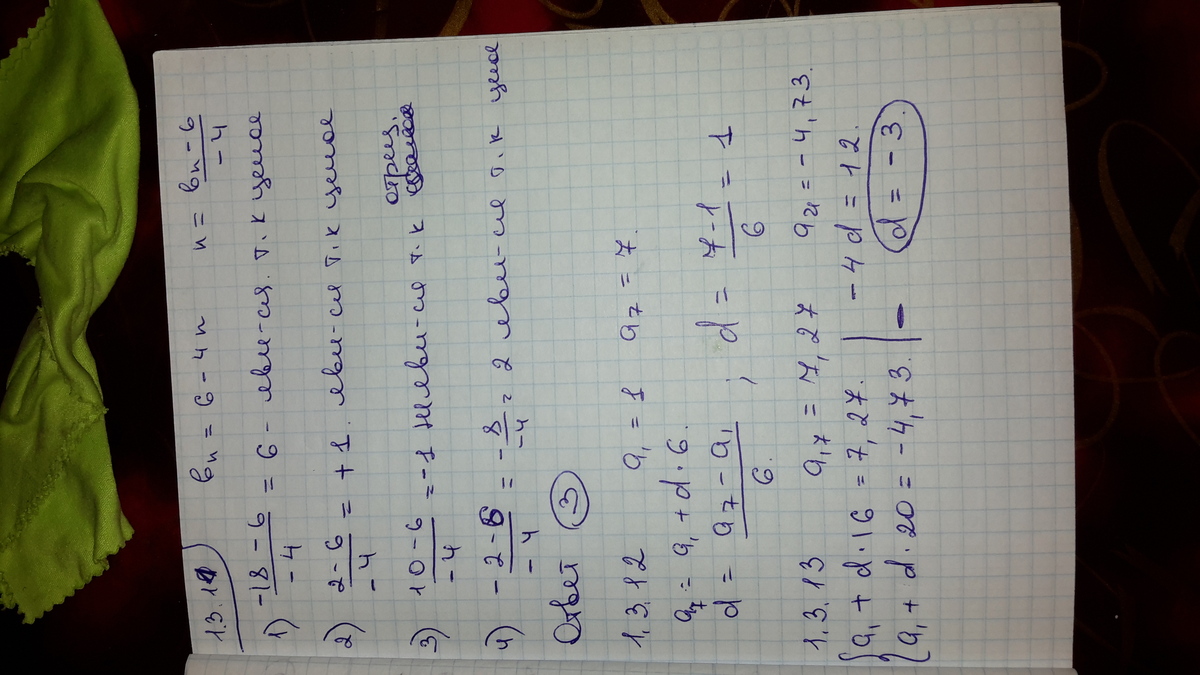 1.3.11 bₙ = 6 - 4n n = (bₙ - 6)/(-4)
1) (-18 - 6)/(-4) = 6 - явл-ся. т.к целое
2) (2 - 6)/(-4) = +1. явл-ся т.к целое
3) (10 - 6)/(-4) = -1 не явл-ся т.к отриц.
4) (-2 - 6)/(-4) = -8/-4 = 2 явл-ся т.к целое
Ответ 3
1.3.12 a₁ = 1 a₇ = 7.
a₇ = a₁ + d·6.
d = (a₇ - a₁)/6. ; d = (7 - 1)/6 = 1
1.3.13 a₁₇ = 7,27 a₂₁ = -4,73.
{ a₁ + d·16 = 7,27. | -4d = 12.
{ a₁ + d·20 = -4,73. | - d = -3.